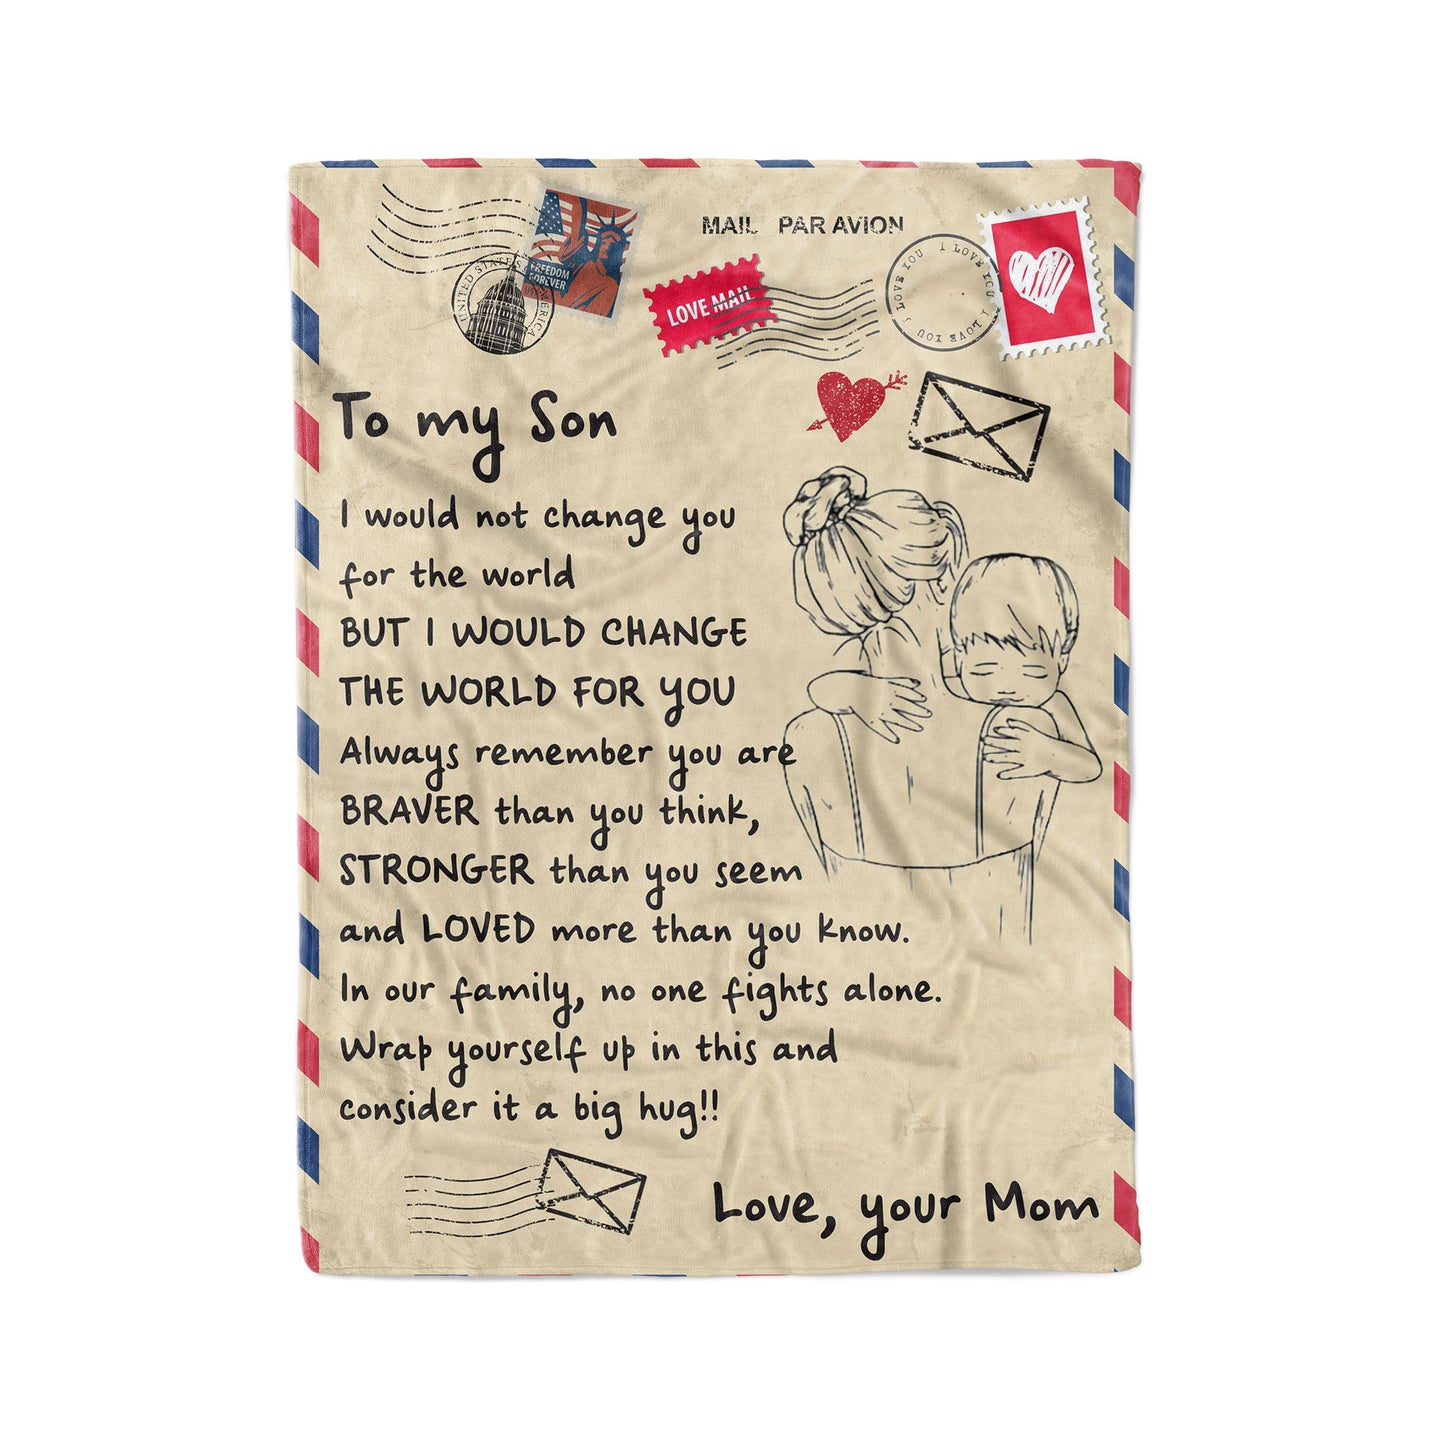 MAIL PAR AVION
FREEDOM
FOREVER
UNITED STATES AMERICA
LOVE MAIL
I LOVE YOU I LOVE YOU I LOVE YOU
To my Son
I would not change you
for the world
BUT I WOULD CHANGE
THE WORLD FOR YOU
Always remember you are
BRAVER than you think,
STRONGER than you seem
and LOVED more than you know.
In our family, no one fights alone.
Wrap yourself up in this and
consider it a big hug!!
Love, your Mom